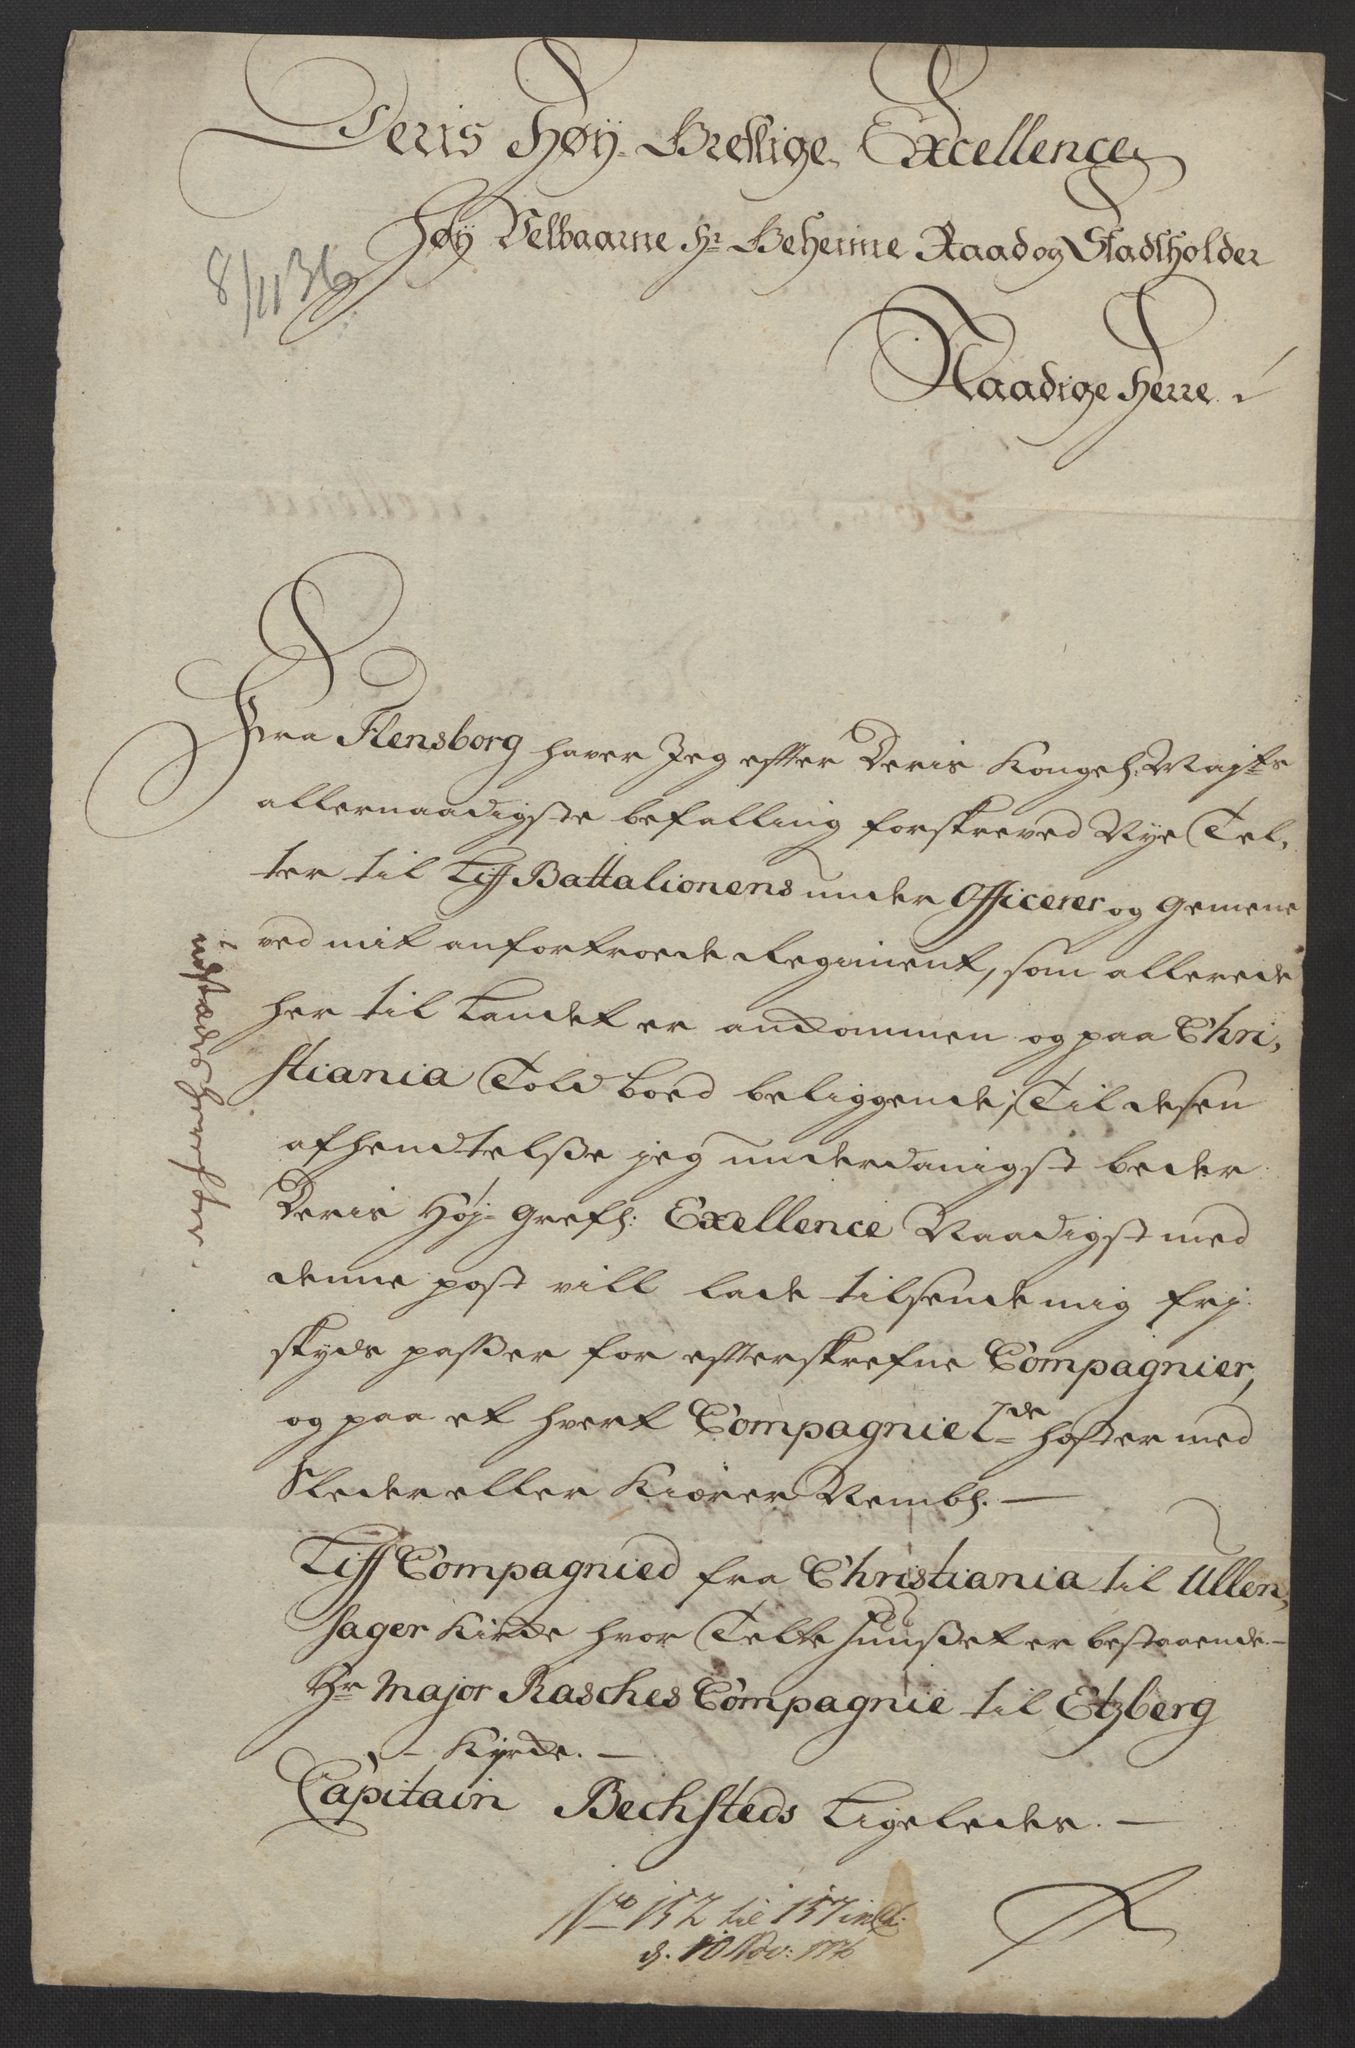 Deris Høy-Greflige Excellence
Høy Velbaarne Hr Geheime Raad og Stadtholder
8/11 36
Naadige Herre
Fra Flensborg haver Jeg efter Deris Kongel: Majts
allernaadigste befalling forskreved Nye Tel,
ter til Liff Battalionens under Officerer og Gemene
ved mit anfortroede Regiment, som allerede
her til Landet er ankommen og paa Chri,
stiania Told boed beliggende; Til desen
afhendtelsse jeg underdanigst beder
Deris Høj-Grefl: Exellence Naadigst med
denne post vill lade tilsende mig frj
skyds passer for efterskrefne Compagnier,
og paa et hvert Compagnie 2de hester med
Sleder eller Kiærer Nembl. —
Liff Compagnied fra Christiania til Ullen,
sager Kirke hvor Telte Huusset er bestaaende.—
Hr Major Rasches Compagnie til Etzberg
— Kyrke. —
Capitain Bechsteds Ligeledes. —
No 152 til 157 incl.
d. 10 Nov: 1736
udstæd herefter.